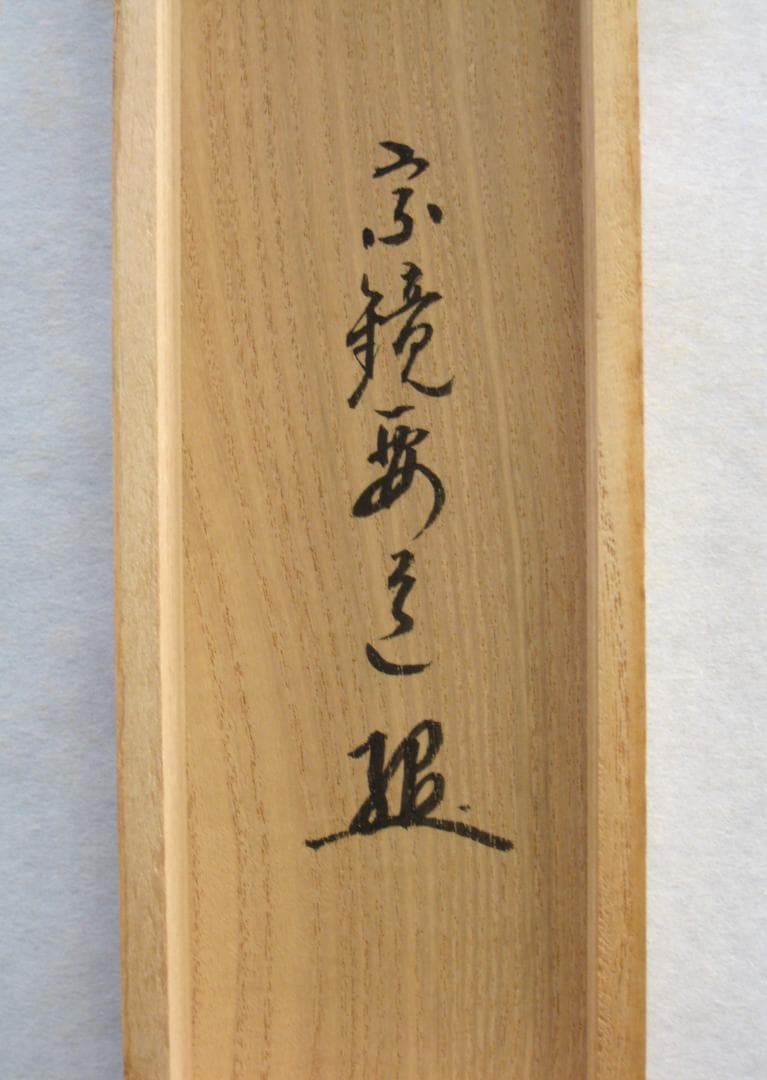 宗鏡要道